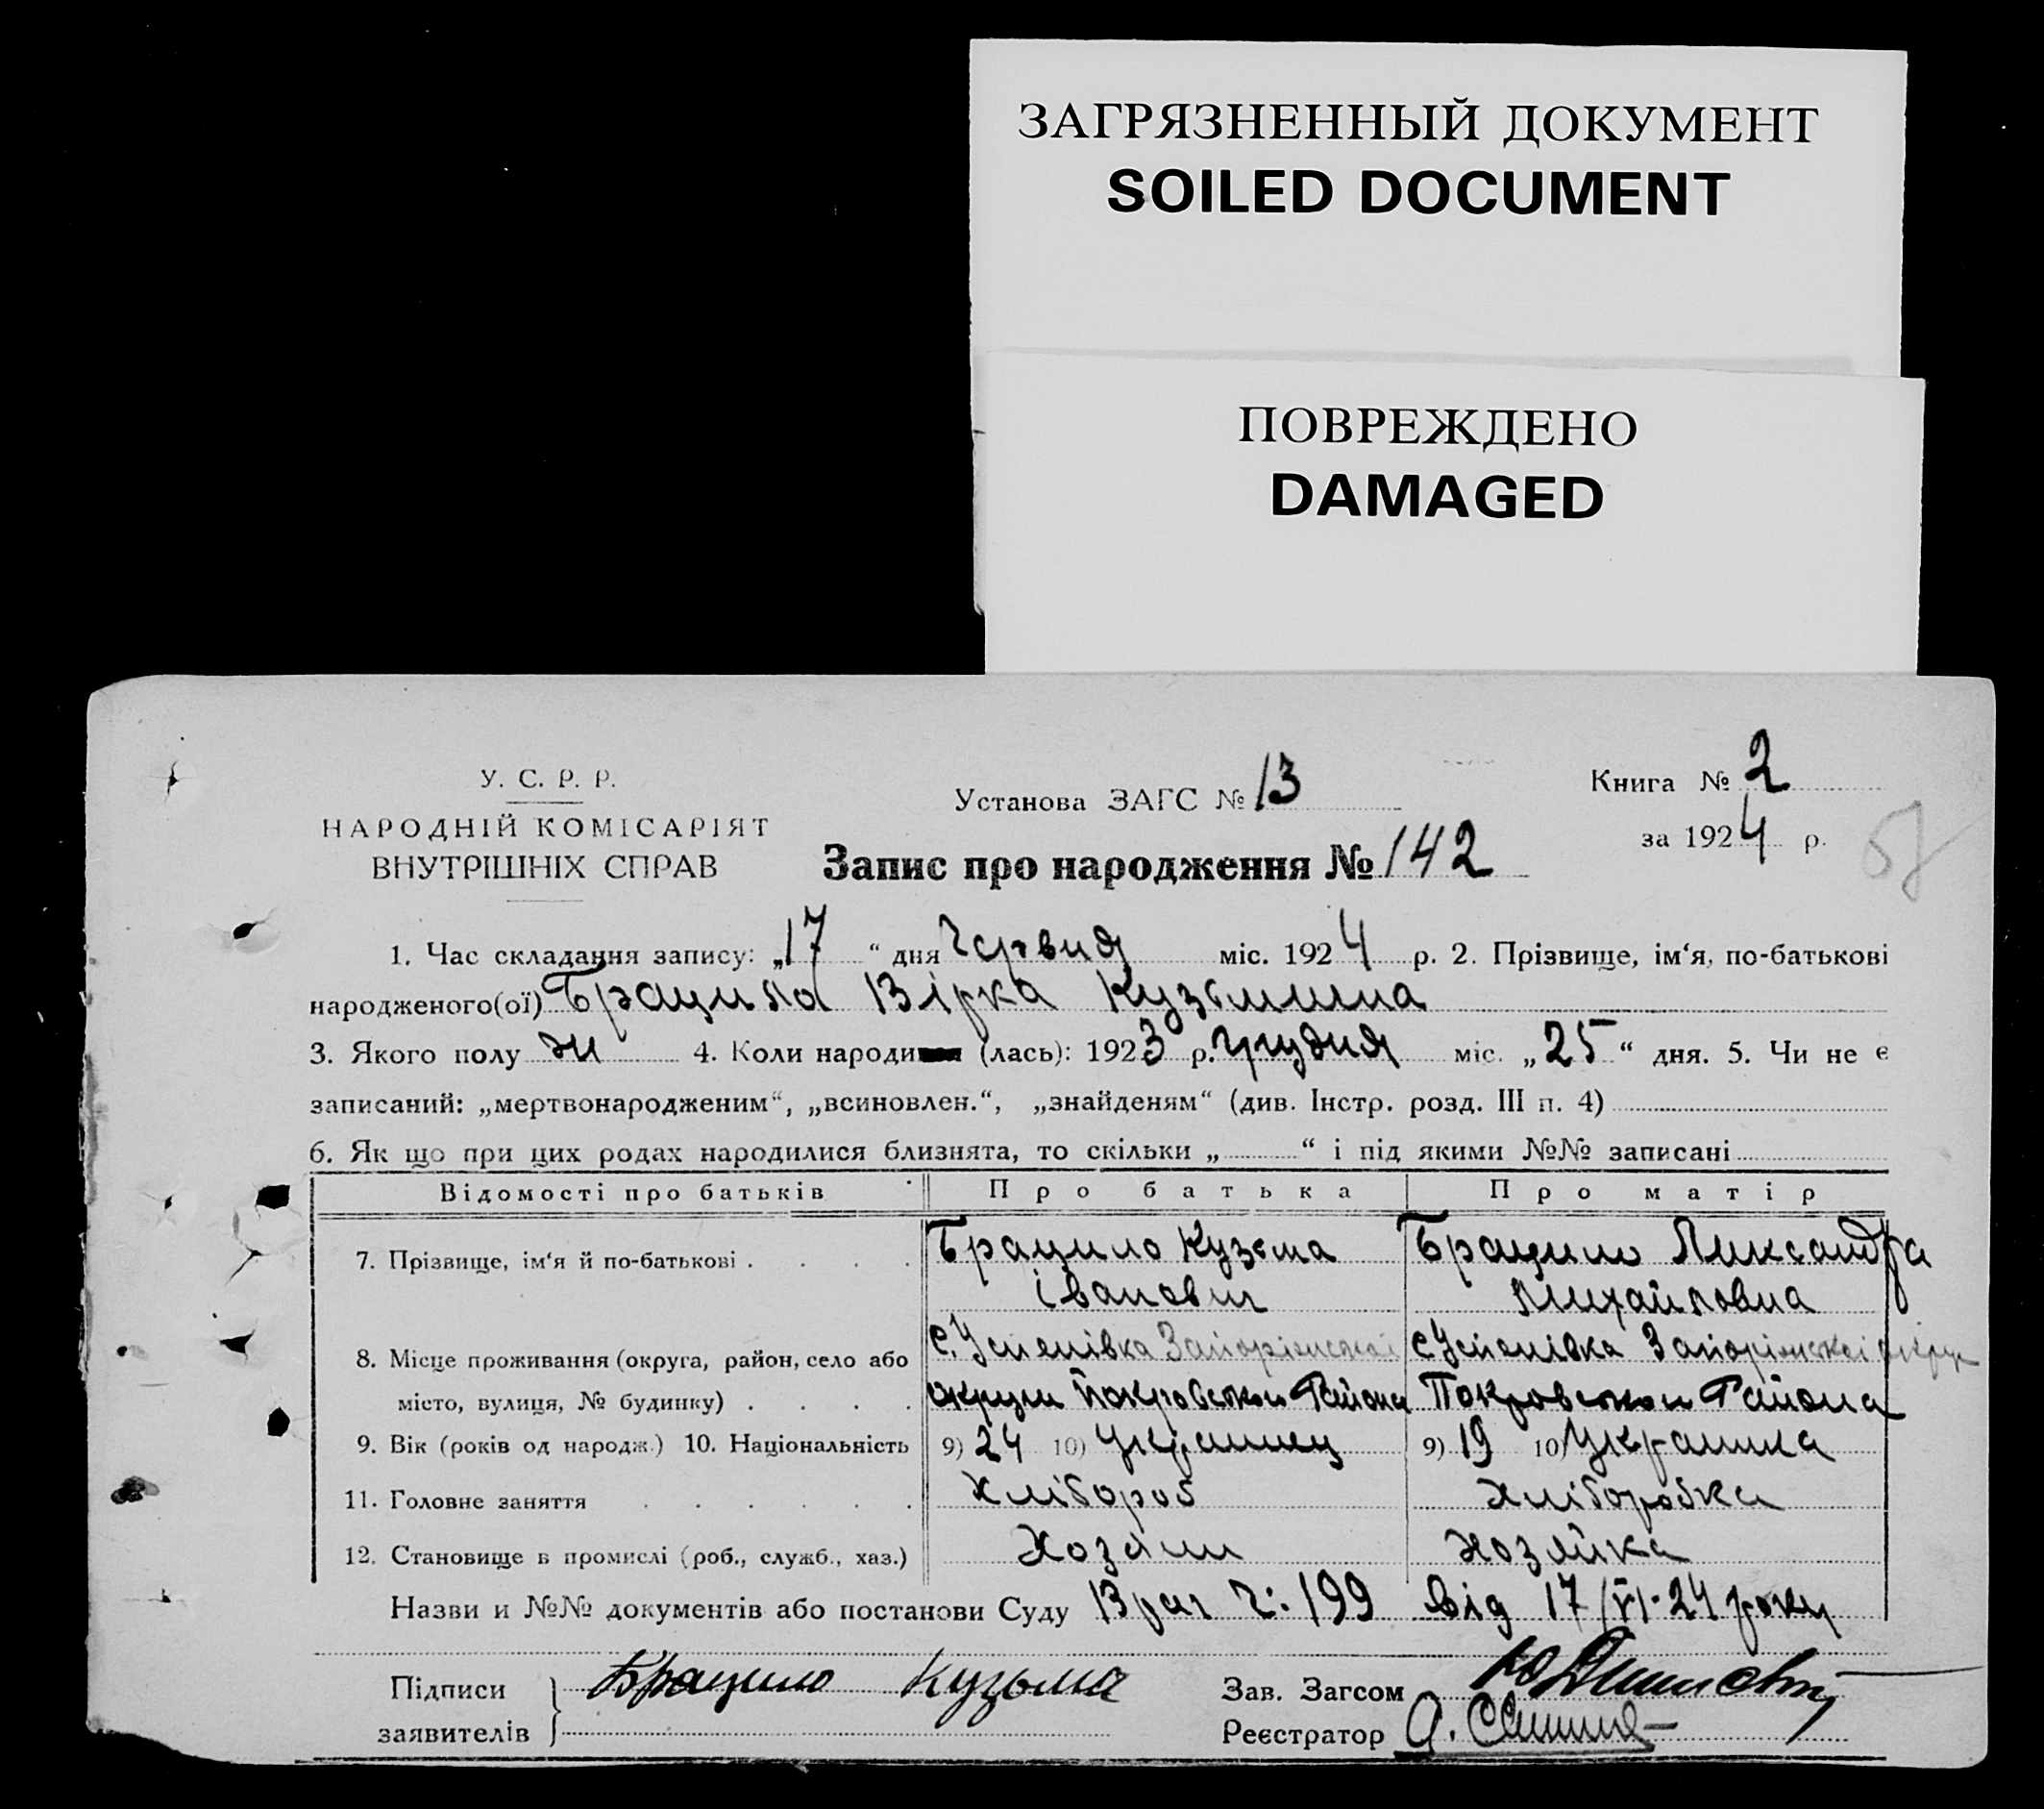 ЗАГРЯЗНЕННЫЙ ДОКУМЕНТ
SOILED DOCUMENT
ПОВРЕЖДЕНО
DAMAGED
У. С. Р. Р.
НАРОДНІЙ КОМІСАРІЯТ
ВНУТРІШНІХ СПРАВ
Установа ЗАГС № 13
Книга № 2
за 1924 р.
Запис про народження № 142
1. Час складання запису: „17“ дня Червня міс. 1924 р. 2. Прізвище, ім‘я, по-батькові
народженого(ої) Брацила Вірка Кузьминна
3. Якого полу жи 4. Коли народи (лась): 1923 р. грудня міс. „25“ дня. 5. Чи не є
записаний: „мертвонародженим“, „всиновлен.“, „знайденям“ (див. Інстр. розд. III п. 4)
6. Як що при цих родах народилися близнята, то скільки „ “ і під якими №№ записані
Відомості про батьків Про батька Про матір
7. Прізвище, ім‘я й по-батькові . . . . Брацило Кузьма Брацило Ликсандра
Іванович Михайловна
8. Місце проживання (округа, район, село або с. Успенівка Запоріжської с Успенівка Запоріжської округи
місто, вулиця, № будинку) . . . . округи Покровськои Района Покровськои Района
9. Вік (років од народж.) 10. Національність 9) 24 10) Українец 9) 19 10) Українка
11. Головне заняття . . . . . . Хлібороб Хліборобка
12. Становище в промислі (роб., служб., хаз.) Хозяин Хозяйка
Назви и №№ документів або постанови Суду Врач ч: 199 від 17/VI-24 року
Підписи заявителів Брацило Кузьма
Зав. Загсом
Реєстратор